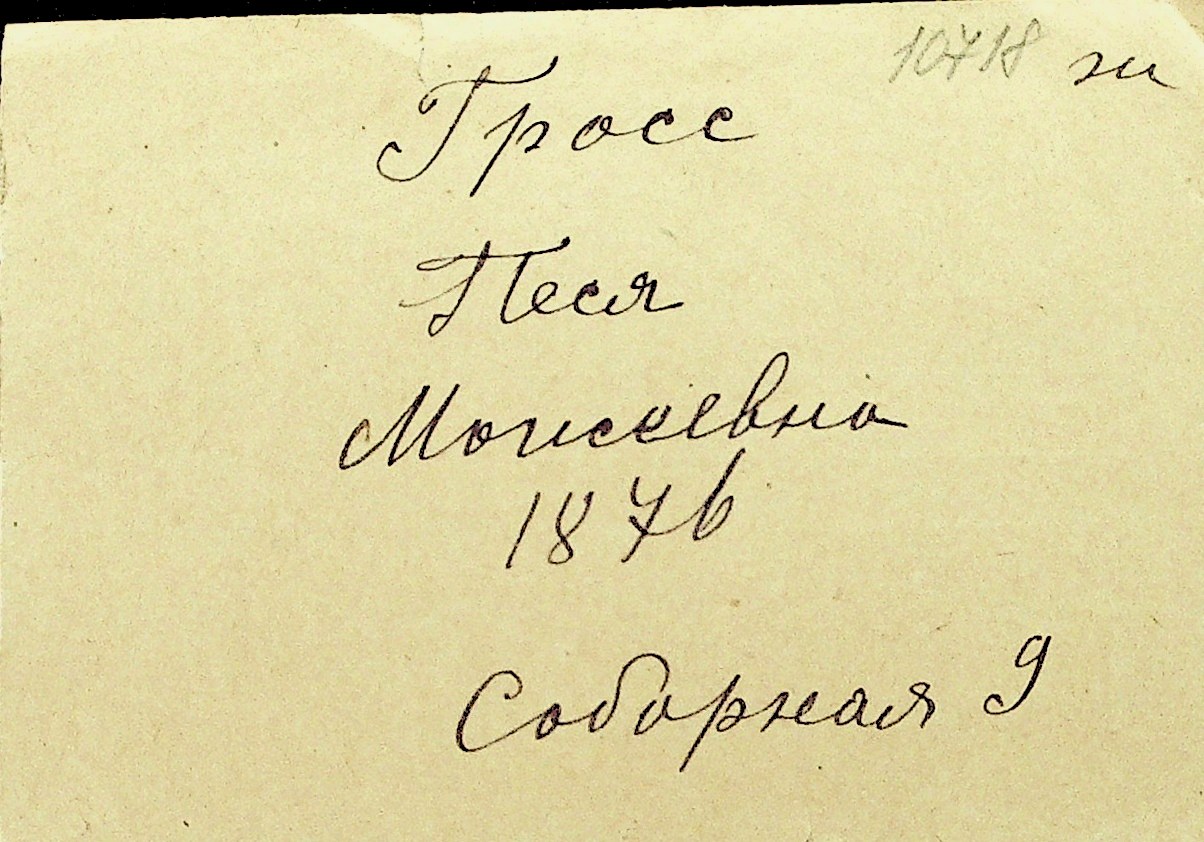 10718 ж
Гросс
Песя
Моисеевна
1876
Соборная 9